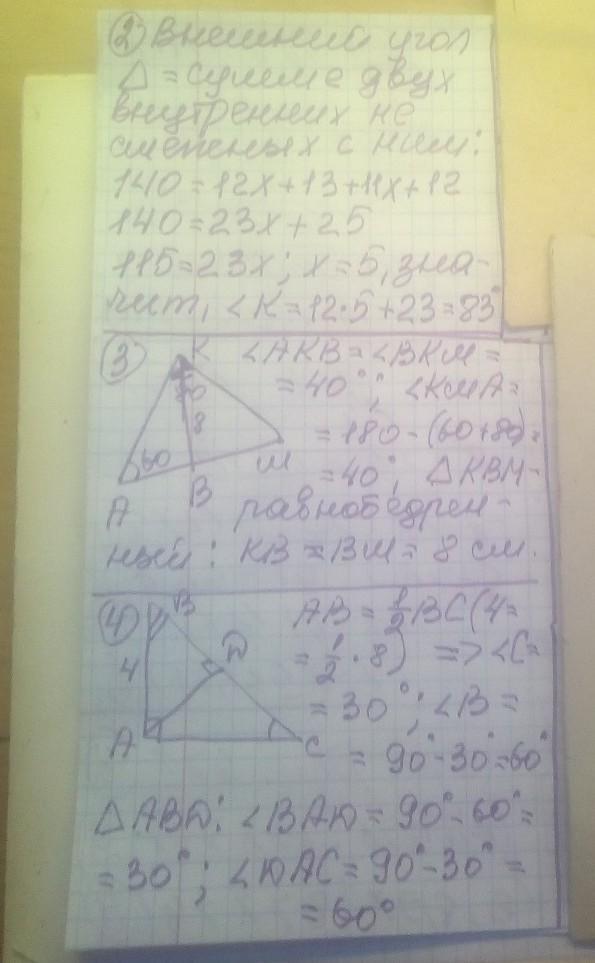 ② Внешний угол
Δ = сумме двух
внутренних не
смежных с ним:
140 = 12x + 13 + 11x + 12
140 = 23x + 25
115 = 23x; x = 5, зна-
чит, ∠K = 12·5 + 23 = 83°
③ K ∠AKB = ∠BKM =
= 40°; ∠KMA =
= 180 - (60 + 80) =
= 40°, ΔKBM -
равнобедрен-
ный: KB = BM = 8 см.
80
8
60
M
B
A
④ B AB = 1/2 BC (4 =
= 1/2 · 8) => ∠C =
= 30°; ∠B =
= 90° - 30° = 60°
D
4
A
C
ΔABD: ∠BAD = 90° - 60° =
= 30°; ∠DAC = 90° - 30° =
= 60°